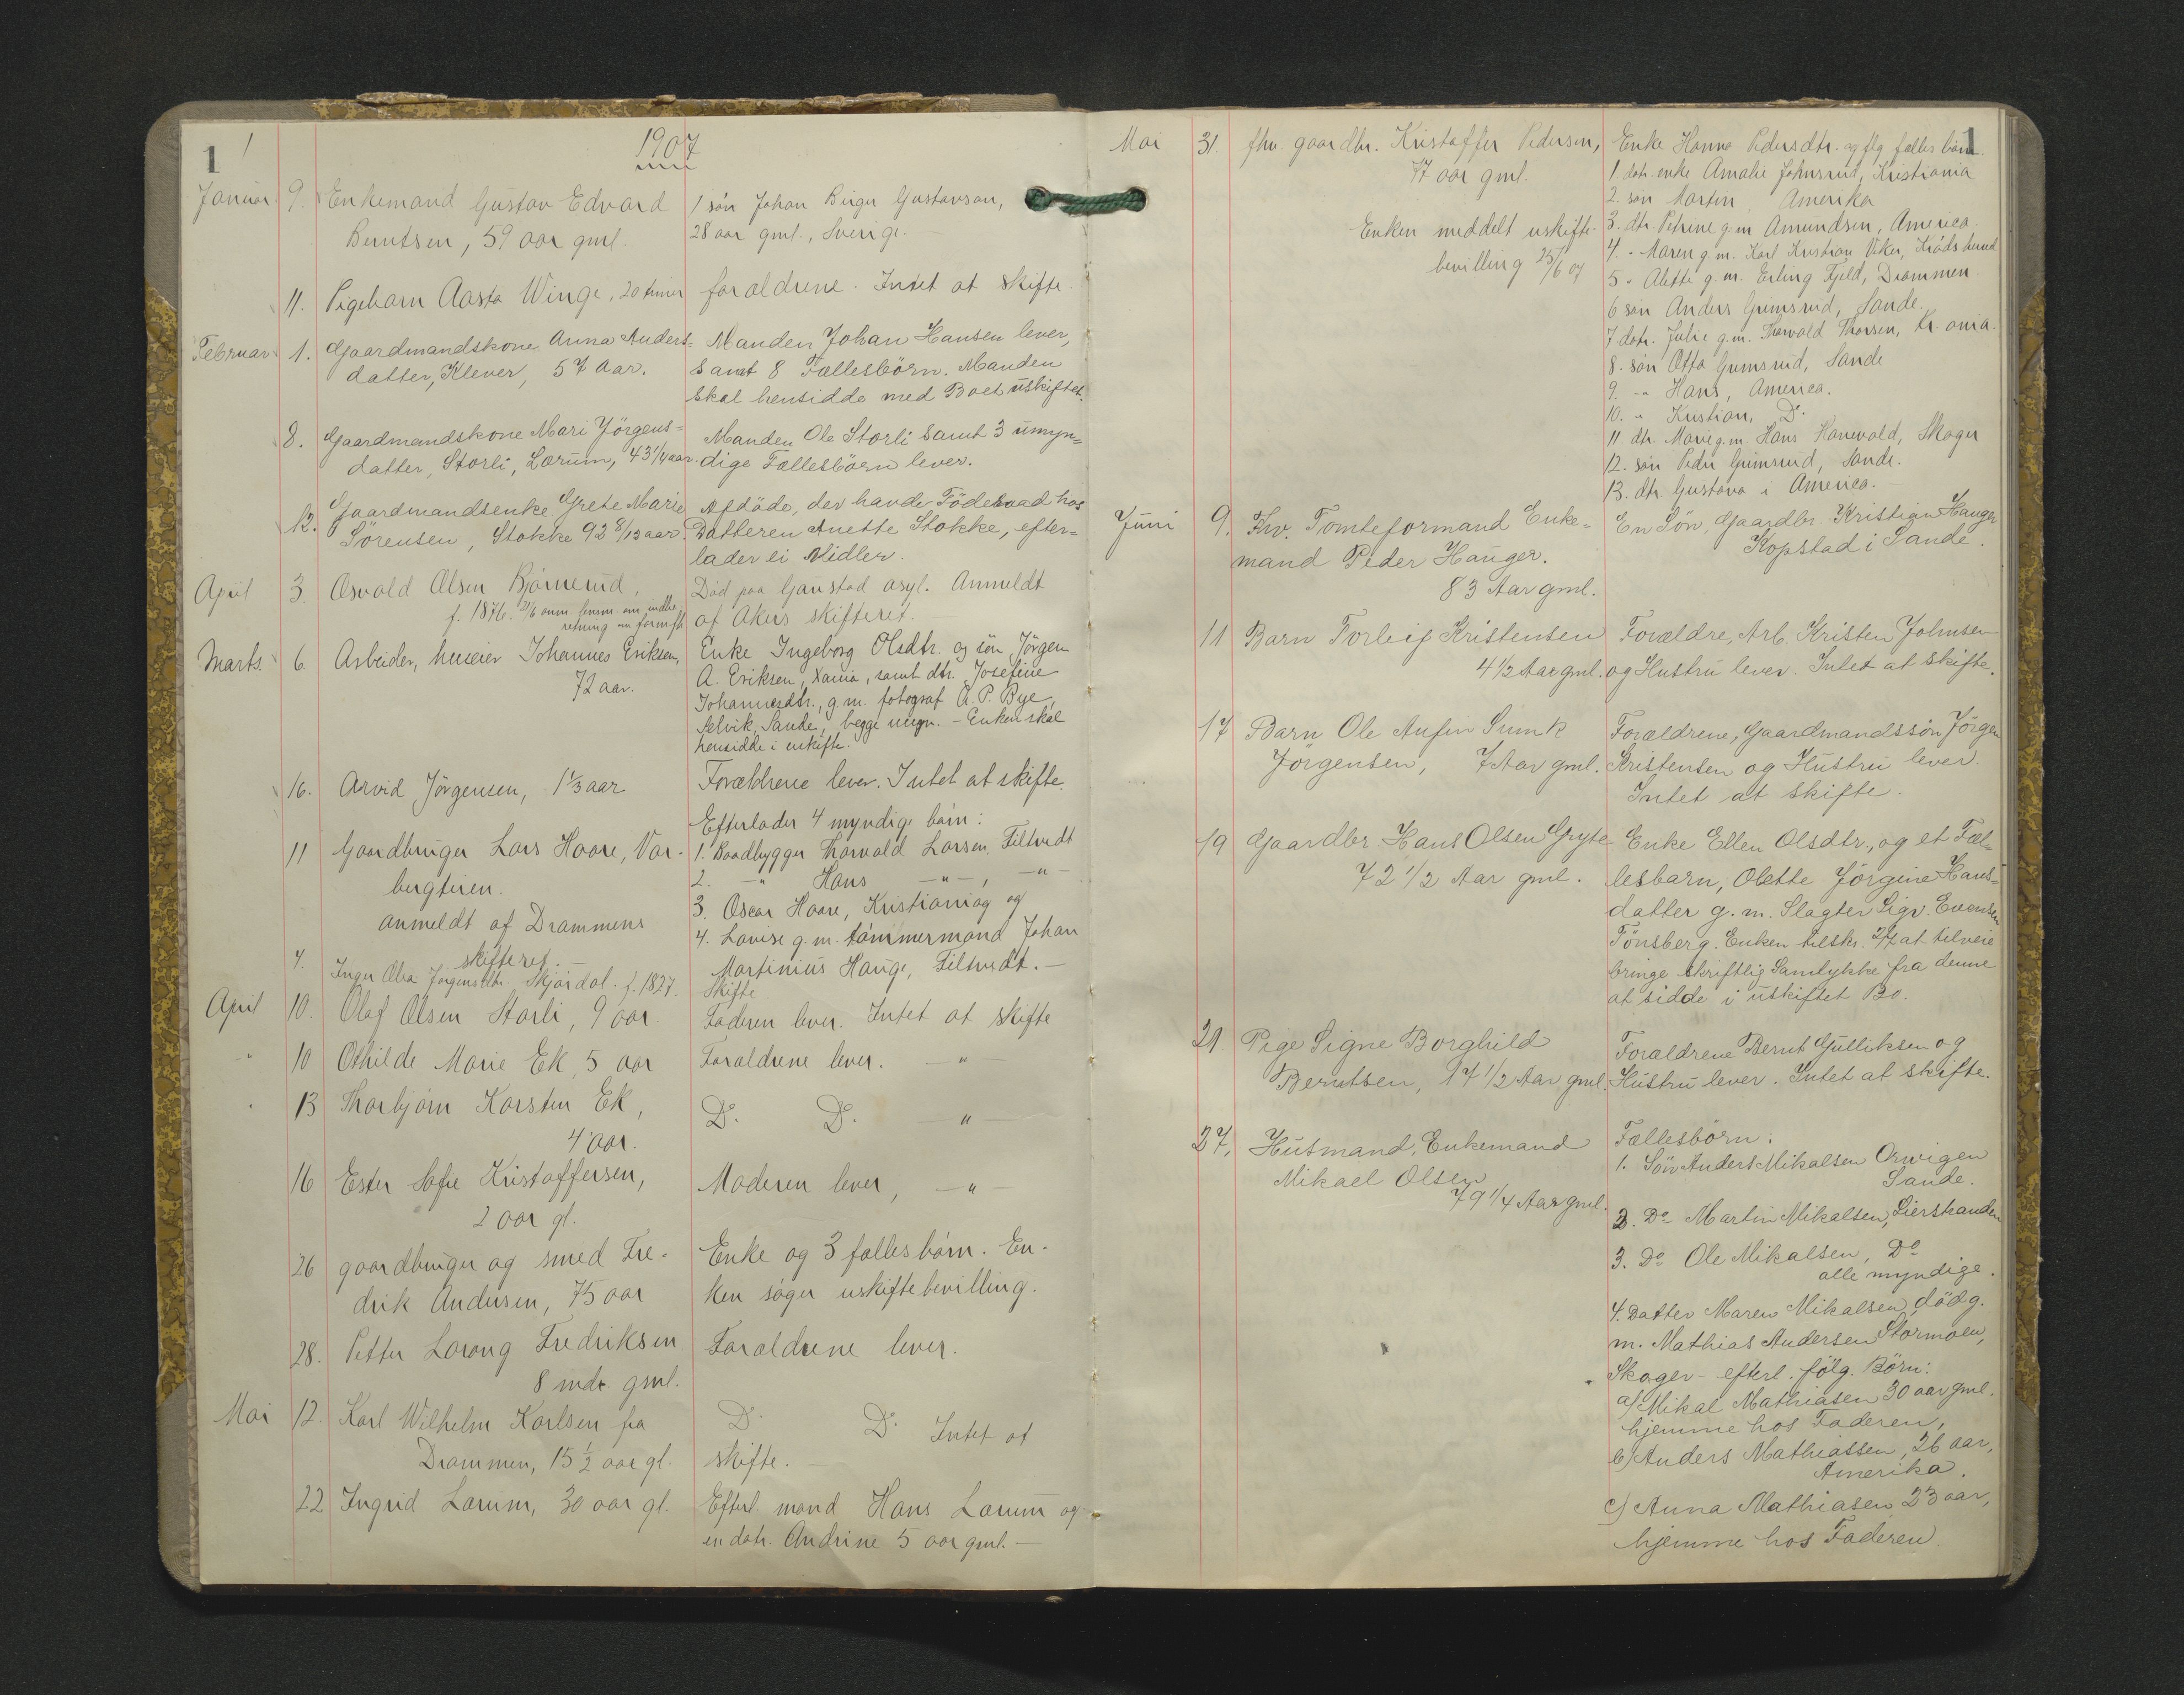 1 1
1907
Januar 9. Enkemand Gustav Edvard
Berntsen, 59 aar gml.
1 sön Johan Birger Gustavson,
28 aar gml., Sverige.
11. Pigebarn Aasta Winge, 20 timer
forældrene. Intet at skifte.
Februar 1. Gaardmandskone Anna Anders-
datter, Klever, 57 Aar.
Manden Johan Hansen lever,
Samt 8 Fællesbörn. Manden
skal hensidde med Boet uskiftet.
8. Gaardmandskone Mari Jörgens-
datter, Storli, Lørum, 43 1/4 aar.
Manden Ole Storli samt 3 umyn-
dige Fællesbörn lever.
12. Gaardmandsenke Grete Marie
Sörensen, Stokke 92 8/12 aar.
Afdöde, der havde Föderaad hos
Datteren Anette Stokke, efter-
lader ei Midler.
April 3. Osvald Olsen Bjørnerud,
f. 1876. 21/6 anm. lensm. om indbe-
retning om formfh
Död paa Gaustad asyl. Anmeldt
af Akers skifteret.
Marts. 6. Arbeider, huseier Johannes Eriksen,
72 aar.
Enke Ingeborg Olsdtr. og sön Jörgen
A. Eriksen, Xania, samt dtr. Josefine
Johannesdtr., g.m. fotograf A. P. Bye,
Selvik, Sande, begge myn. - Enken skal
hensidde i uskifte.
16. Arvid Jörgensen, 1 1/3 aar
Forældrene lever. Intet at skifte.
11 Gaardbruger Lars Hoare, Var-
bergteien.
anmeldt af Drammens
skifteret. -
Efterlader 4 myndige börn:
1. Baadbygger Thorvald Larsen, Filtvedt
2. -"- Hans -"-, -"-
3. Oscar Hoare, Kristiania og
4. Lovise g.m. tömmermand Johan
Martinius Hauge, Filtvedt. -
4. Inger Olea Jörgensdtr. Skjørdal. f. 1827.
Skifte
April 10. Olaf Olsen Storli, 9 aar
Faderen lever. Intet at skifte
" 10 Othilde Marie Ek, 5 aar
Forældrene lever. -"-
" 13 Thorbjørn Karsten Ek,
4 aar.
Do. Do. -"-
16 Ester Sofie Kristoffersen,
2 aar gl.
Moderen lever, -"-
26 gaardbruger og smed Fre-
drik Andersen, 75 aar
Enke og 3 fælles börn. En-
ken söger uskiftebevilling.
28. Petter Lorang Fredriksen
8 mdr. gml.
Forældrene lever.
Mai 12. Karl Wilhelm Karlsen fra
Drammen, 15 1/2 aar gl.
Do. Do. Intet at
skifte. -
22 Ingrid Lørum, 30 aar gl.
Efterl. mand Hans Lørum og
en datr. Andrine 5 aar gml. -
1
Mai 31. fhv. gaardbr. Kristoffer Pedersen,
77 aar gml.
Enken meddelt uskifte-
bevilling 25/6 07
Enke Hanna Pedersdtr. og flg fælles börn.
1 datr. enke Amalie Johnsrud, Kristiania
2. sön Martin Amerika
3. dtr. Petrine g.m Amundsen, America.
4. - Maren g.m. Karl Kristian Viker, Krödsherred
5 " Alette g.m. Erling Fjeld, Drammen.
6 sön Anders Grimsrud, Sande.
7 datr. Julie g.m. Harvald Thorsen, Kr.ania.
8. sön Otto Grimsrud, Sande
9. -" Hans, America.
10. " Kristian, Do.
11 dtr. Marie g.m. Hans Hanevold, Skoger
12. sön Peder Grimsrud, Sande.
13. dtr. Gustava i America. -
Juni 9. Fhv. Tomteformand Enke-
mand Peder Hauger.
83 Aar gml.
En Sön, Gaardbr. Kristian Hauger
Kopstad i Sande.
11 Barn Torleif Kristensen
4 1/2 Aar gml.
Forældre, Arb. Kristen Johnsen
og Hustru lever. Intet at skifte.
17 Barn Ole Anfin Sumk
Jörgensen, 7 Aar gml.
Forældrene, Gaardmandssön Jörgen
Kristensen og Hustru lever.
Intet at skifte.
19 Gaardbr Hans Olsen Gryte
72 1/2 Aar gml.
Enke Ellen Olsdtr., og et Fæl-
lesbarn, Olette Jörgine Hans-
datter g.m. Slagter Sigv. Evensen
Tönsberg. Enken tilskr. 2/7 at tilveie
bringe skriftlig Samtykke fra denne
at sidde i uskiftet Bo.
21. Pige Signe Borghild
Berntsen, 17 1/2 Aar gml.
Forældrene Bernt Gulliksen og
Hustru lever. Intet at skifte.
27, Husmand, Enkemand
Mikael Olsen
79 1/4 Aar gml.
Fællesbörn:
1. Sön Anders Mikalsen Orvigen
Sande.
2. Do Martin Mikalsen, Lierstranden
3. Do Ole Mikalsen, Do
alle myndige.
4. Datter Maren Mikalsen, död g.
m. Mathias Andersen Stormoen,
Skoger - efterl. fölg. Börn:
a) Mikal Mathiasen 30 aar gml.
hjemme hos Faderen,
b) Anders Mathiassen, 26 aar,
Amerika.
c) Anna Mathiasen 23 aar,
hjemme hos Faderen.